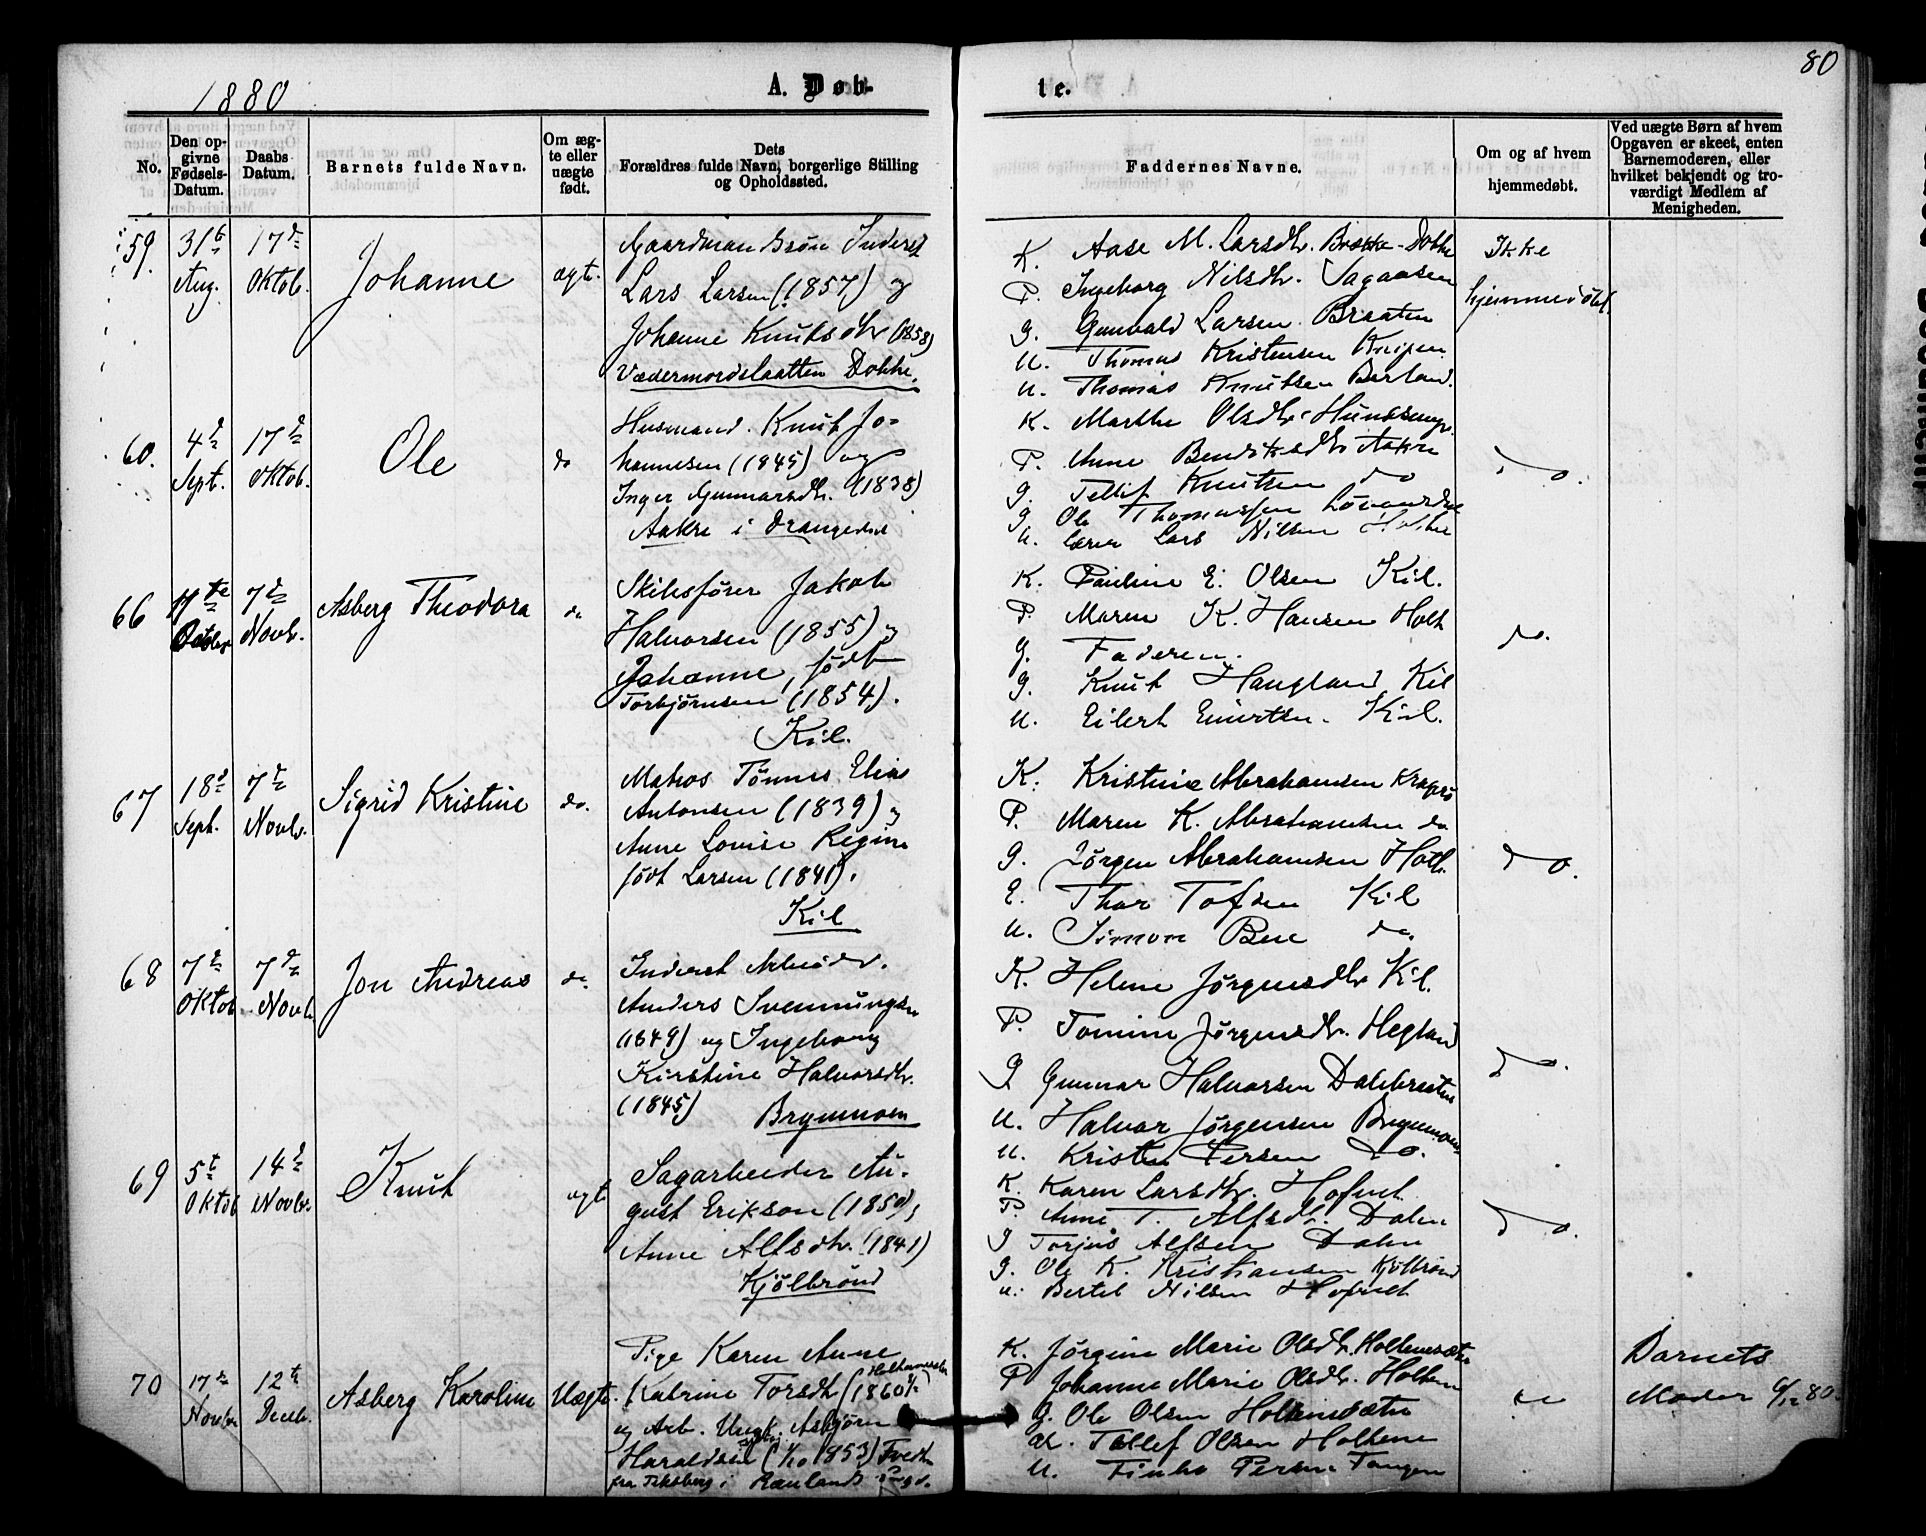 80
1880
A. Døb-
te.
No.
Den op-
givne
Fødsels-
Datum.
Daabs
Datum.
Barnets fulde Navn.
Om æg-
te eller
uægte
født.
Dets
Forældres fulde Navn, borgerlige Stilling
og Opholdssted.
Faddernes Navne.
Om og af hvem
hjemmedøbt.
Ved uægte Børn af hvem
Opgaven er skeet, enten
Barnemoderen, eller
hvilket bekjendt og tro-
værdigt Medlem af
Menigheden.
59.
31te
Aug.
17de
Oktob.
Johanne
ægt.
Gaardman Inderst
Lars Larsen (1857) og
Johanne Knutsdtr (1858)
Dokke.
K. Aase M. Larsdtr. Brække-Dokke
P. Ingeborg Nilsdtr. Sagaasen
G. Gunvald Larsen Braaten
U. Thomas Kristensen Knipen
U. Thomas Knutsen Berland.
Ikke
hjemmedøbt.
60.
4de
Sept.
17de
Oktob.
Ole
do
Husmand. Knut Jo-
hannesen (1845) og
Inger Gunnarsdtr. (1838)
Aakre i Drangedal
K. Marthe Olsdtr
P. Anne Bendiksdtr Aakre
G. Tellif Knutsen do
G. Ole Thomassen
U. Lærer Lars Nilsen
do.
66
11te
Octbr
7de
Novbr.
Asberg Theodora
do
Skibsfører Jakob
Halvorsen (1855) og
Johanne, født
Torbjørnsen (1854).
Kil.
K. Pauline E. Olsen Kil.
P. Maren K. Hansen Holt
G. Faderen.
G. Knut Haugland Kil
U. Eilert Evertsen. Kil.
do.
67
18de
Sept.
7de
Novbr.
Sigrid Kristine
do.
Matros Tønnes Elias
Antonsen (1839) og
Anne Lovise Regine
født Larsen (1841).
Kil
K. Kristine Abrahamsen Kragerø
P. Maren K. Abrahamsen do
G. Jørgen Abrahamsen Holt.
E. Thor Tofsen Kil
U. Simon Bue do.
do.
68
7de
Oktob
7de
Novbr.
Jon Andreas
do.
Inderst Arbeider.
Anders Svennungsen
(1849) og Ingeborg
Kirstine Halvorsdtr.
(1845) Brynemoen
K. Helene Jørgensdtr Kil.
P. Tomine Jørgensdtr. Hegland
G Gunnar Halvorsen Dalebraaten
U. Halvor Jørgensen Brynemoen
U. Kristen Persen do.
do.
69
5te
Oktob
14de
Novbr.
Knut
ægt
Sagarbeider Au-
gust Erikson (1850),
Anne Alfsdtr. (1841)
Kjølbrønd
K. Karen Larsdtr. Hofnet
P. Anne T. Alfsdtr. Dalen
G Torjus Alfsen Dalen
G. Ole K. Kristiansen Kjølbrønd
U. Bertel Nilsen Hofnet
do.
70
17de
Novbr
12te
Decbr.
Asberg Karoline
Uægt.
Pige Karen Anne
Katrine Torsdtr (1860
og Arb. Ungk. Asbjørn
Haraldsen (1/10 1853)
fra i Rauland
K. Jørgine Marie Olsdtr. Holtenesæter
P Johanne Marie Olsdtr. Holtene
G. Ole Olsen Holtenesæter
U. Tellef Olsen Holtene
U. Persen Tangen
do
Barnets
Moder 6/12 80.